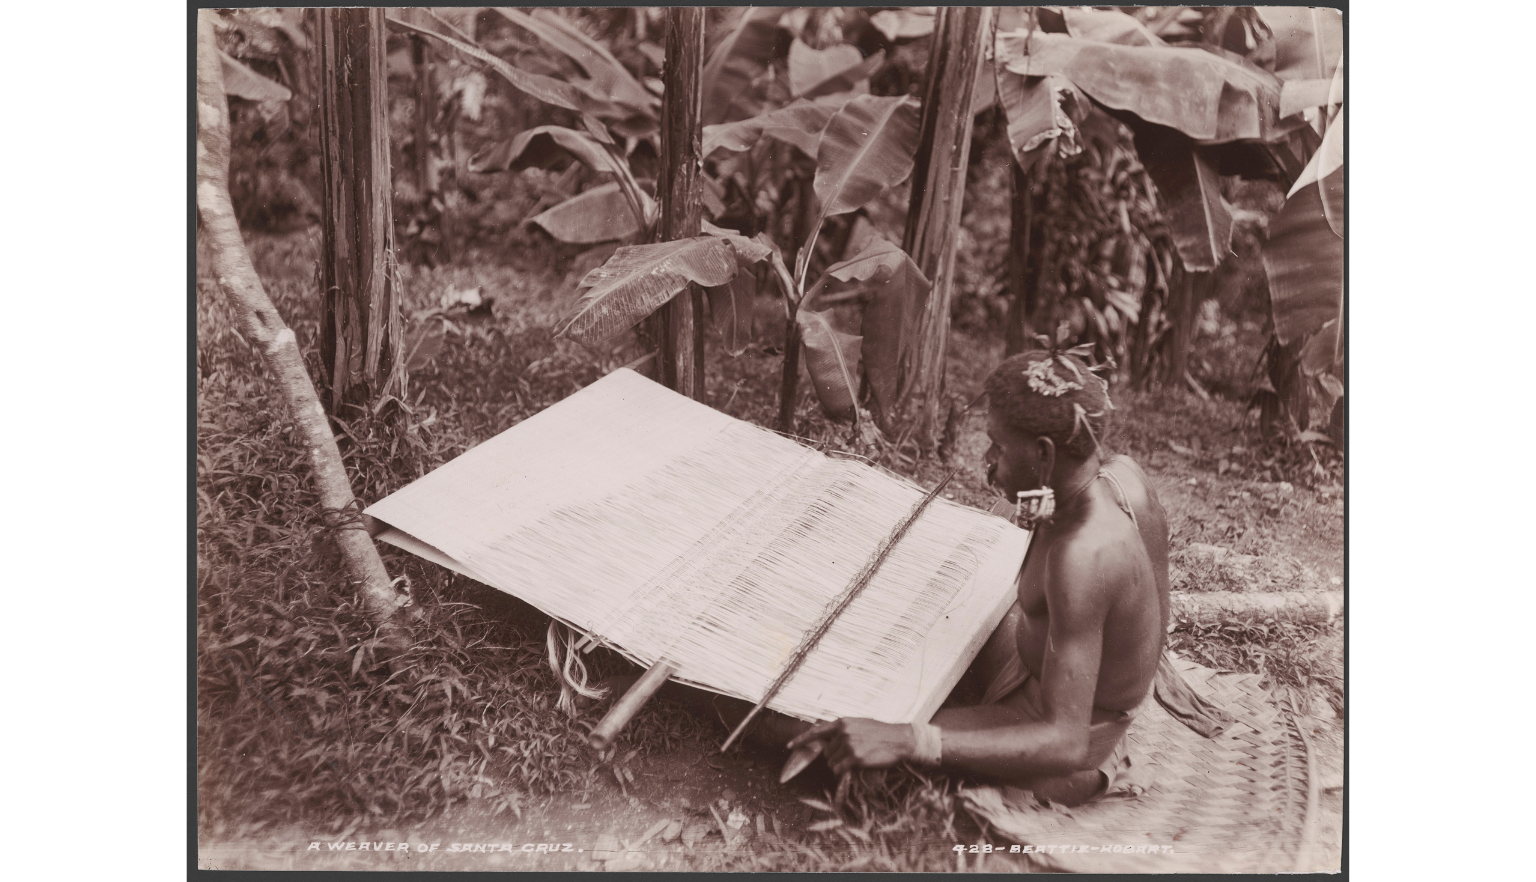 A WEAVER OF SANTA CRUZ.
428-BEATTIE-HOBART.